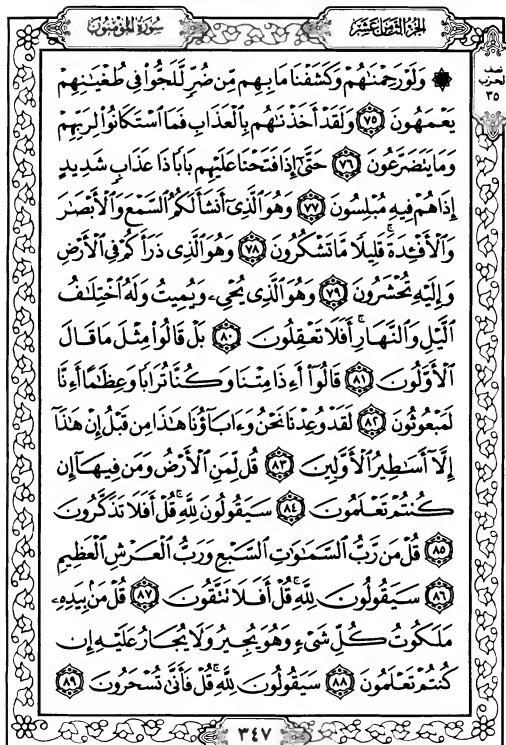 الجزء الثامن عشر
سورة المؤمنون
نصف
الحزب
٣٥
۞ وَلَوْ رَحِمْنَـٰهُمْ وَكَشَفْنَا مَا بِهِم مِّن ضُرٍّ لَّلَجُّوا۟ فِى طُغْيَـٰنِهِمْ
يَعْمَهُونَ ٧٥ وَلَقَدْ أَخَذْنَـٰهُم بِٱلْعَذَابِ فَمَا ٱسْتَكَانُوا۟ لِرَبِّهِمْ
وَمَا يَتَضَرَّعُونَ ٧٦ حَتَّىٰٓ إِذَا فَتَحْنَا عَلَيْهِم بَابًا ذَا عَذَابٍ شَدِيدٍ
إِذَا هُمْ فِيهِ مُبْلِسُونَ ٧٧ وَهُوَ ٱلَّذِىٓ أَنشَأَ لَكُمُ ٱلسَّمْعَ وَٱلْأَبْصَـٰرَ
وَٱلْأَفْـِٔدَةَ ۚ قَلِيلًا مَّا تَشْكُرُونَ ٧٨ وَهُوَ ٱلَّذِى ذَرَأَكُمْ فِى ٱلْأَرْضِ
وَإِلَيْهِ تُحْشَرُونَ ٧٩ وَهُوَ ٱلَّذِى يُحْىِۦ وَيُمِيتُ وَلَهُ ٱخْتِلَـٰفُ
ٱلَّيْلِ وَٱلنَّهَارِ ۚ أَفَلَا تَعْقِلُونَ ٨٠ بَلْ قَالُوا۟ مِثْلَ مَا قَالَ
ٱلْأَوَّلُونَ ٨١ قَالُوٓا۟ أَءِذَا مِتْنَا وَكُنَّا تُرَابًا وَعِظَـٰمًا أَءِنَّا
لَمَبْعُوثُونَ ٨٢ لَقَدْ وُعِدْنَا نَحْنُ وَءَابَآؤُنَا هَـٰذَا مِن قَبْلُ إِنْ هَـٰذَآ
إِلَّآ أَسَـٰطِيرُ ٱلْأَوَّلِينَ ٨٣ قُل لِّمَنِ ٱلْأَرْضُ وَمَن فِيهَآ إِن
كُنتُمْ تَعْلَمُونَ ٨٤ سَيَقُولُونَ لِلَّهِ ۚ قُلْ أَفَلَا تَذَكَّرُونَ
٨٥ قُلْ مَن رَّبُّ ٱلسَّمَـٰوَٰتِ ٱلسَّبْعِ وَرَبُّ ٱلْعَرْشِ ٱلْعَظِيمِ
٨٦ سَيَقُولُونَ لِلَّهِ ۚ قُلْ أَفَلَا تَتَّقُونَ ٨٧ قُلْ مَنۢ بِيَدِهِۦ
مَلَكُوتُ كُلِّ شَىْءٍ وَهُوَ يُجِيرُ وَلَا يُجَارُ عَلَيْهِ إِن
كُنتُمْ تَعْلَمُونَ ٨٨ سَيَقُولُونَ لِلَّهِ ۚ قُلْ فَأَنَّىٰ تُسْحَرُونَ ٨٩
٣٤٧